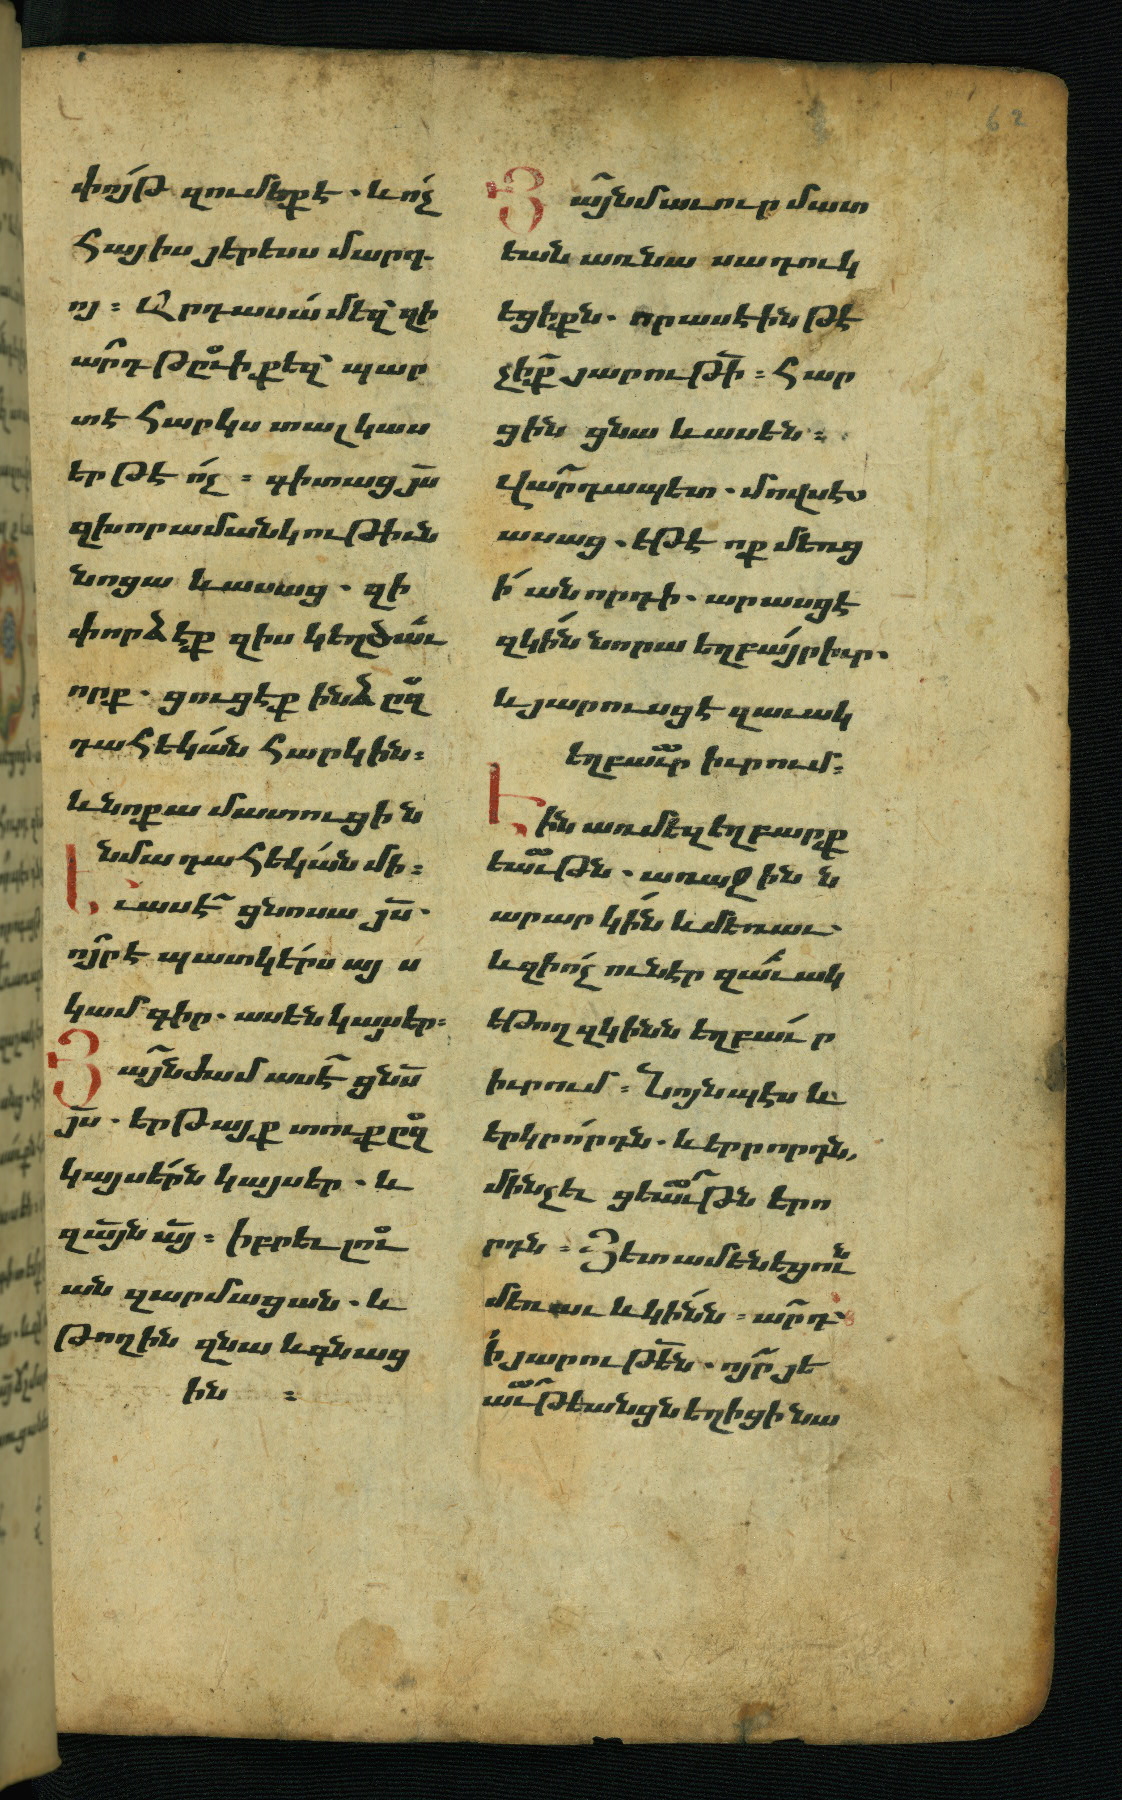 62
փոյթ զումեքէ . և ոչ
հայիս յերեսս մարդ֊
ոյ ։ Արդ ասա մեզ զի
արդ թըւի քեզ պար
տէ հարկս տալ կայս
եր թէ ոչ ։ գիտաց յս
զխորամանկութիւն
նոցա և ասաց . զի
փորձէք զիս կեղծաւ
որք . ցուցէք ինձ ըզ
դահեկան հարկին ։
և նոքա մատուցին
նմա դահեկան մի ։
Եւ ասէ ցնոսա յս .
ոյր է պատկերս այս
կամ գիր . ասեն կայսեր ։
Յայնժամ ասէ ցնս
յս . երթայք տուք ըզ
կայսերն կայսեր . և
զայն այ ։ իբրեւ լու
ան զարմացան . և
թողին զնա և գնաց
ին ։
Յայնմ աւուր մատ
եան առ նա սադուկ
եցիքն . որ ասէին թէ
չիք յարութի ։ հար
ցին ցնա և ասեն ։
Վարդապետ . մովսէս
ասաց . եթէ ոք մեռց
ի անորդի . արասցէ
զկին նորա եղբայր իւր .
և յարուսցէ զաւակ
եղբաւր իւրում ։
Էին առ մեզ եղբարք
եաւթն . առաջինն
արար կին և մեռաւ
և զի ոչ ունէր զաւակ
եթող զկինն եղբաւր
իւրում ։ Նոյնպէս և
երկրորդն . և երրորդն,
մինչեւ ցեաւթներո
րդն ։ Յետ ամենեցուն
մեռաւ և կինն ։ արդ
ի յարութեն . ոյր յե
աւթեանցն եղիցի նա